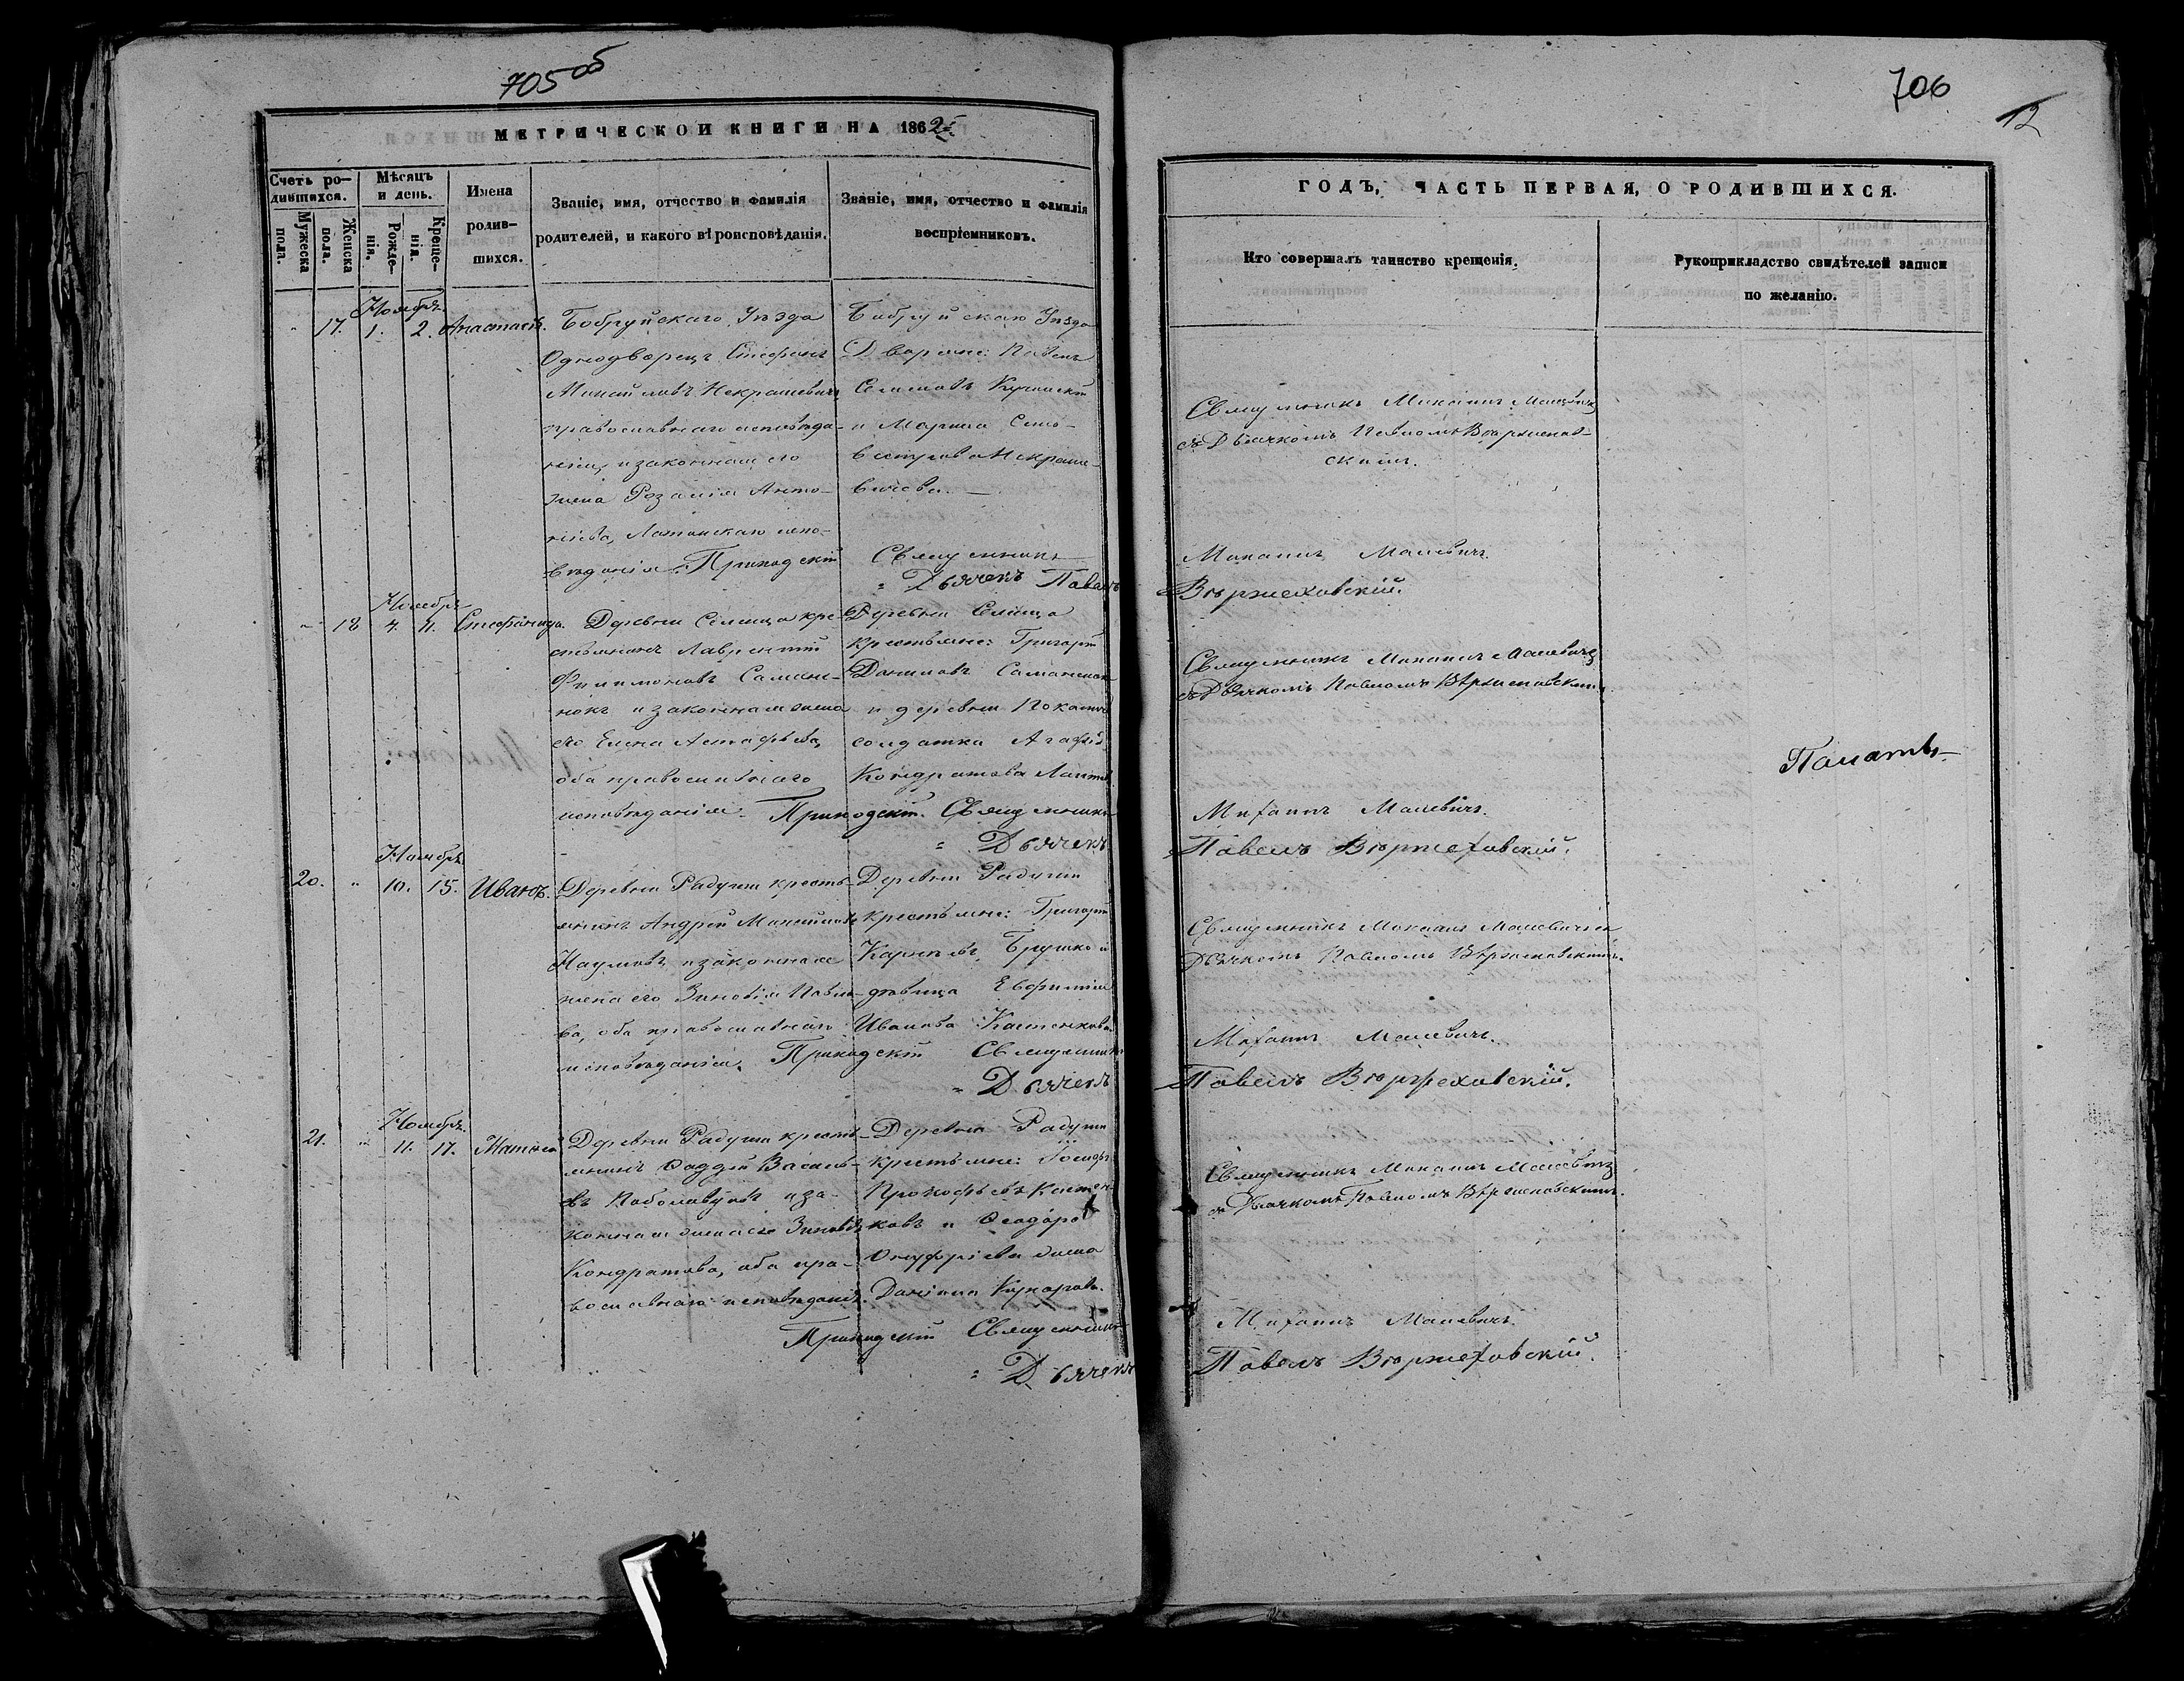 705 об
МЕТРИЧЕСКОЙ КНИГИ НА 1862й
Счетъ ро-
дившихся.
Мужеска пола.
Женска пола.
Мѣсяцъ
и день.
Рожде-
нія.
Креще-
нія.
Имена
родив-
шихся.
Званіе, имя, отчество и фамилія
родителей, и какого вѣроисповѣданія.
Званіе, имя, отчество и фамилія
воспріемниковъ.
Ноябрь.
" 17. 1. 2. Анастасія.
Бобруйскаго Уѣзда
Однодворецъ Стефанъ
Михайловъ Некрашевичъ
православнаго исповѣда-
нія, и законная его
жена Розалія Анто-
нієва, Латинскаго испо-
вѣданія.
Бобруйскаго Уѣзда
Дворяне: Павелъ
и Марина
Некраше-
вичева.
Приходскій Священникъ
" Дьячекъ Павелъ
Ноябрь
" 18 4. 11. Стефанида.
Деревни Селища кре-
стьянинъ Лаврентій
Филимоновъ Самане-
нокъ и законная жена
его Елена Астафьева,
оба православнаго
исповѣданія.
Деревни Селища
крестьяне: Григорій
Даниловъ Саманенокъ
и деревни
солдатка Агафія
Кондратова
Приходскій Священникъ
" Дьячекъ
Ноябрь
20. " 10. 15. Иванъ.
Деревни Радуши кресть-
янинъ Андрей Михайловъ
Наумовъ и законная
жена его Зиновія Павло-
ва, оба православнаго
исповѣданія.
Деревни Радуши
крестьяне: Григорій
Карпѣевъ Брушко и
дѣвица Евфимія
Иванова Костенкова.
Приходскій Священникъ
" Дьячекъ
Ноябрь.
21. " 11. 17. Матвѣй
Деревни Радуши кресть-
янинъ Фаддей Василь-
евъ и за-
конная жена его Зиновія
Кондратова, оба пра-
вославнаго исповѣданія.
Деревни Радуши
крестьяне: Іосифъ
Прокофьевъ Костен-
ковъ и Ѳеодора
Онуфріева жена
Даніила
Приходскій Священникъ
" Дьячекъ
706
12
ГОДЪ, ЧАСТЬ ПЕРВАЯ, О РОДИВШИХСЯ.
Кто совершалъ таинство крещенія.
Рукоприкладство свидѣтелей записи
по желанію.
Священникъ Михаилъ Малевичъ
съ Дьячкомъ Павломъ Вержехов-
скимъ.
Михаилъ Малевичъ.
Вержеховскій.
Священникъ Михаилъ Малевичъ
съ Дьячкомъ Павломъ Вержеховскимъ.
Михаилъ Малевичъ.
Павелъ Вержеховскій.
Священникъ Михаилъ Малевичъ съ
Дьячкомъ Павломъ Вержеховскимъ.
Михаилъ Малевичъ.
Павелъ Вержеховскій.
Священникъ Михаилъ Малевичъ
съ Дьячкомъ Павломъ Вержеховскимъ.
Михаилъ Малевичъ.
Павелъ Вержеховскій.